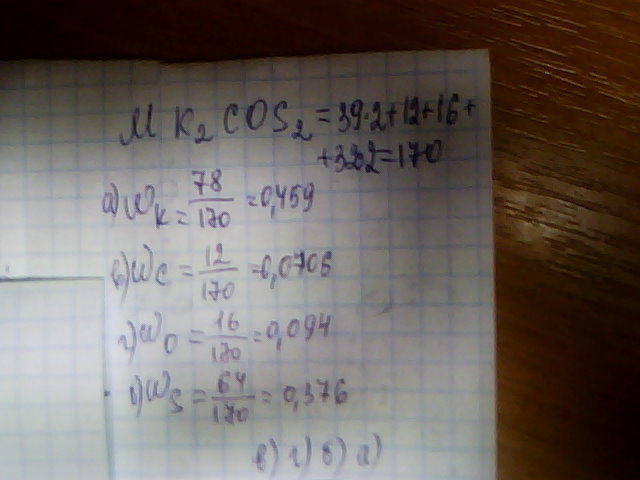 M K₂COS₂ = 39·2+12+16+
+32·2=170
а) W K = 78/170 = 0,459
в) W C = 12/170 = 0,0706
г) W O = 16/170 = 0,094
б) W S = 64/170 = 0,376
в) г) б) а)